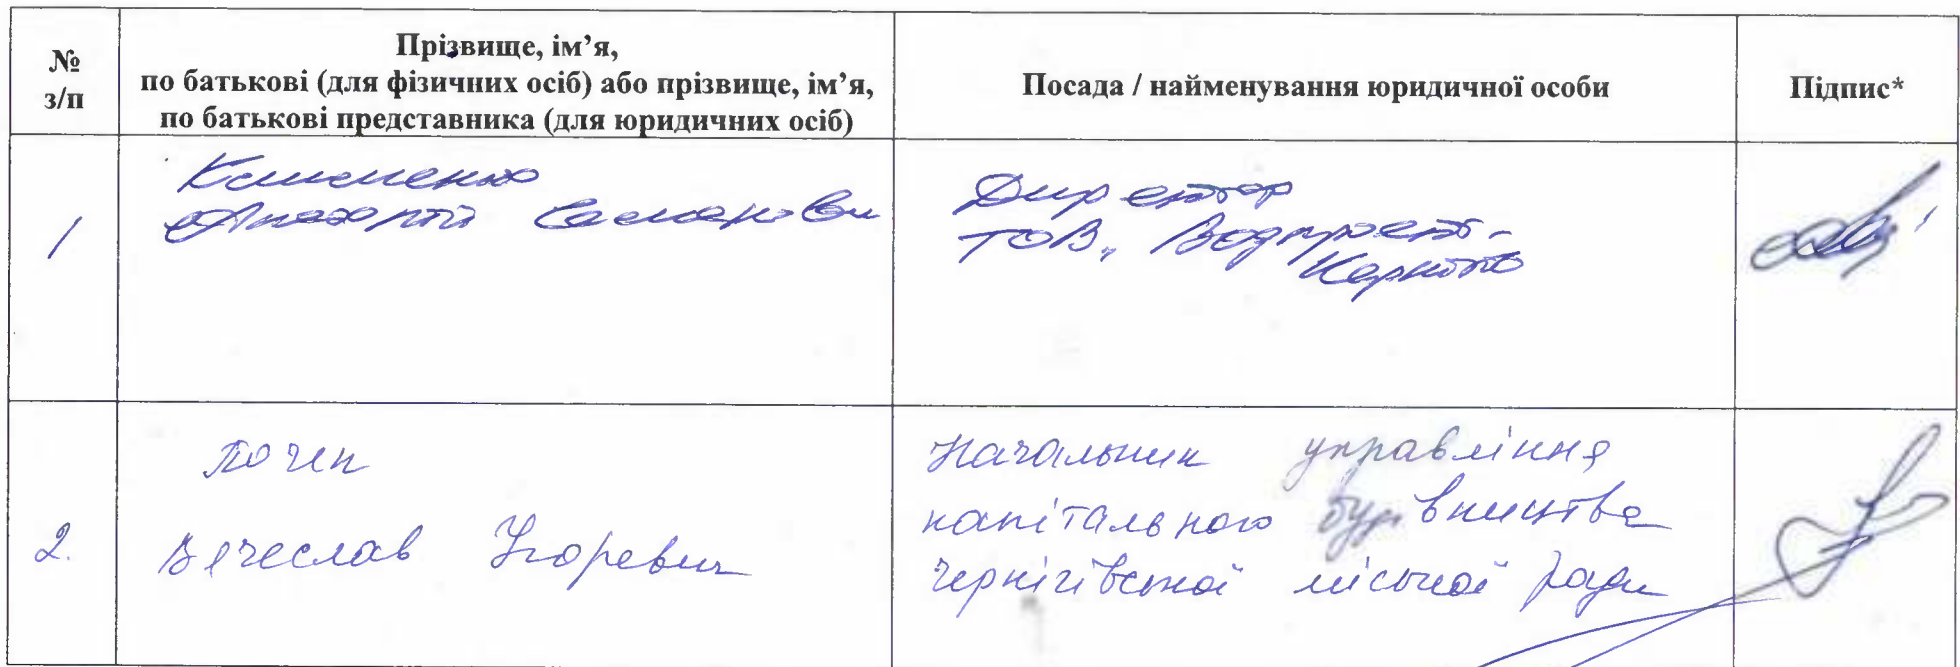 №
з/п
Прізвище, ім’я,
по батькові (для фізичних осіб) або прізвище, ім’я,
по батькові представника (для юридичних осіб)
Посада / найменування юридичної особи
Підпис*
1
Анатолій
Директор
ТОВ „Водпроект-
2.
Вячеслав Ігоревич
Начальник управління
капітального будівництва
Чернігівської міської ради